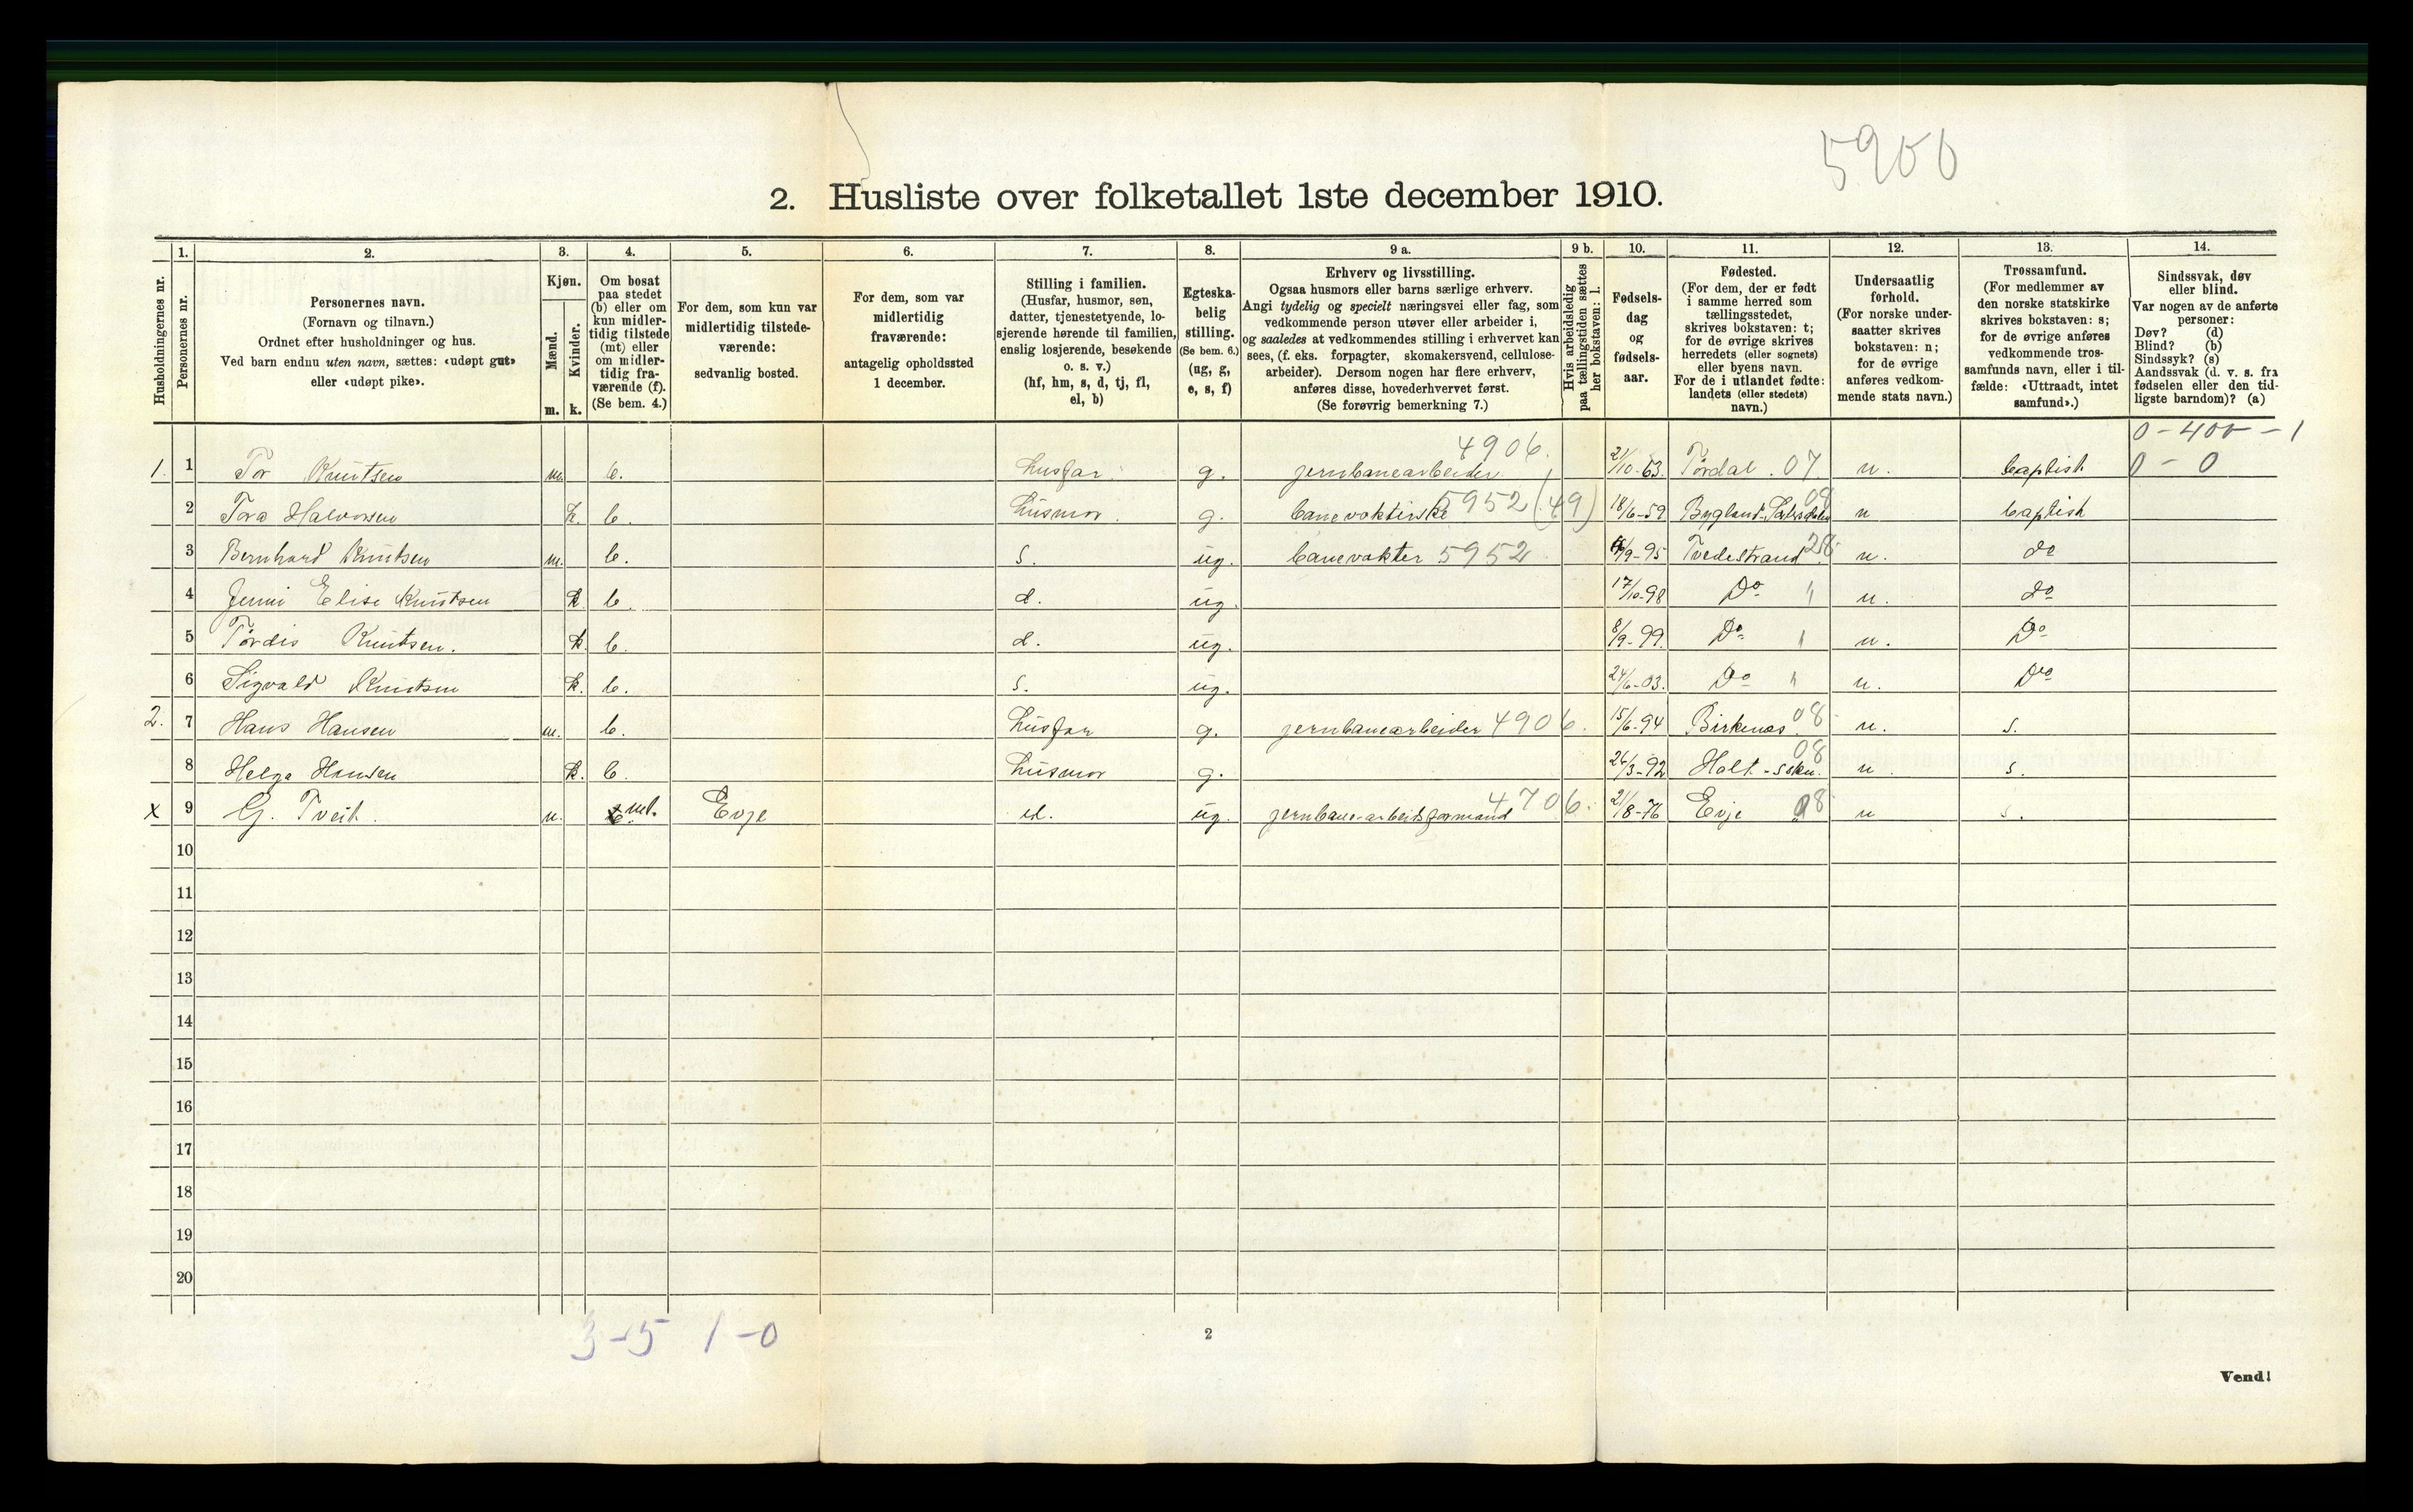 5900
2. Husliste over folketallet 1ste december 1910.
Husholdningernes nr.
1.
Personernes nr.
2.
Personernes navn.
(Fornavn og tilnavn.)
Ordnet efter husholdninger og hus.
Ved barn endnu uten navn, sættes: «udøpt gut»
eller «udøpt pike».
3.
Kjøn.
Mænd.
Kvinder.
m. k.
4.
Om bosat
paa stedet
(b) eller om
kun midler-
tidig tilstede
(mt) eller
om midler-
tidig fra-
værende (f).
(Se bem. 4.)
5.
For dem, som kun var
midlertidig tilstede-
værende:
sedvanlig bosted.
6.
For dem, som var
midlertidig
fraværende:
antagelig opholdssted
1 december.
7.
Stilling i familien.
(Husfar, husmor, søn,
datter, tjenestetyende, lo-
sjerende hørende til familien,
enslig losjerende, besøkende
o. s. v.)
(hf, hm, s, d, tj, fl,
el, b)
8.
Egteska-
belig
stilling.
(Se bem. 6.)
(ug, g,
e, s, f)
9 a.
Erhverv og livsstilling.
Ogsaa husmors eller barns særlige erhverv.
Angi tydelig og specielt næringsvei eller fag, som
vedkommende person utøver eller arbeider i,
og saaledes at vedkommendes stilling i erhvervet kan
sees, (f. eks. forpagter, skomakersvend, cellulose-
arbeider). Dersom nogen har flere erhverv,
anføres disse, hovederhvervet først.
(Se forøvrig bemerkning 7.)
9 b.
Hvis arbeidsledig
paa tællingstiden sættes
her bokstaven: l.
10.
Fødsels-
dag
og
fødsels-
aar.
11.
Fødested.
(For dem, der er født
i samme herred som
tællingsstedet,
skrives bokstaven: t;
for de øvrige skrives
herredets (eller sognets)
eller byens navn.
For de i utlandet fødte:
landets (eller stedets)
navn.)
12.
Undersaatlig
forhold.
(For norske under-
saatter skrives
bokstaven: n;
for de øvrige
anføres vedkom-
mende stats navn.)
13.
Trossamfund.
(For medlemmer av
den norske statskirke
skrives bokstaven: s;
for de øvrige anføres
vedkommende tros-
samfunds navn, eller i til-
fælde: «Uttraadt, intet
samfund».)
14.
Sindssvak, døv
eller blind.
Var nogen av de anførte
personer:
Døv? (d)
Blind? (b)
Sindssyk? (s)
Aandssvak (d. v. s. fra
fødselen eller den tid-
ligste barndom)? (a)
1. 1 Tor Knutsen m. b. husfar g. jernbanearbeider 4906. 21/10-63. Tørdal. 07 n. baptist 0 - 0
2 Tora Halvorsen k. b. husmor. g. banevokterske 5952 (49) 18/6-59 Bygland-Sætersdalen 08 n baptist
3 Bernhard Knutsen m. b. s. ug. banevokter 5952 /9-95 Tvedestrand n. do
4 Jenni Elise Knutsen k b. d. ug. 17/10-98 Do n. do
5 Tordis Knutsen. k. b. d. ug. 8/9-99. Do n. Do
6 Sigvald Knutsen k. b. s. ug. 24/6-03. Do n. Do
2. 7 Hans Hansen m. b. husfar g. jernbanearbeider 4906. 15/6-94 Birkenæs 08 n. s.
8 Helga Hansen k. b. husmor g. 26/3-92 Holt-sokn. 08 n. s.
x 9 G. Tveit. m. mt. Evje el. ug. jernbane-arbeidsformand 4706. 21/8-76 Evje 08 n s.
10
11
12
13
14
15
16
17
18
19
20
3-5 1-0
2
Vend!